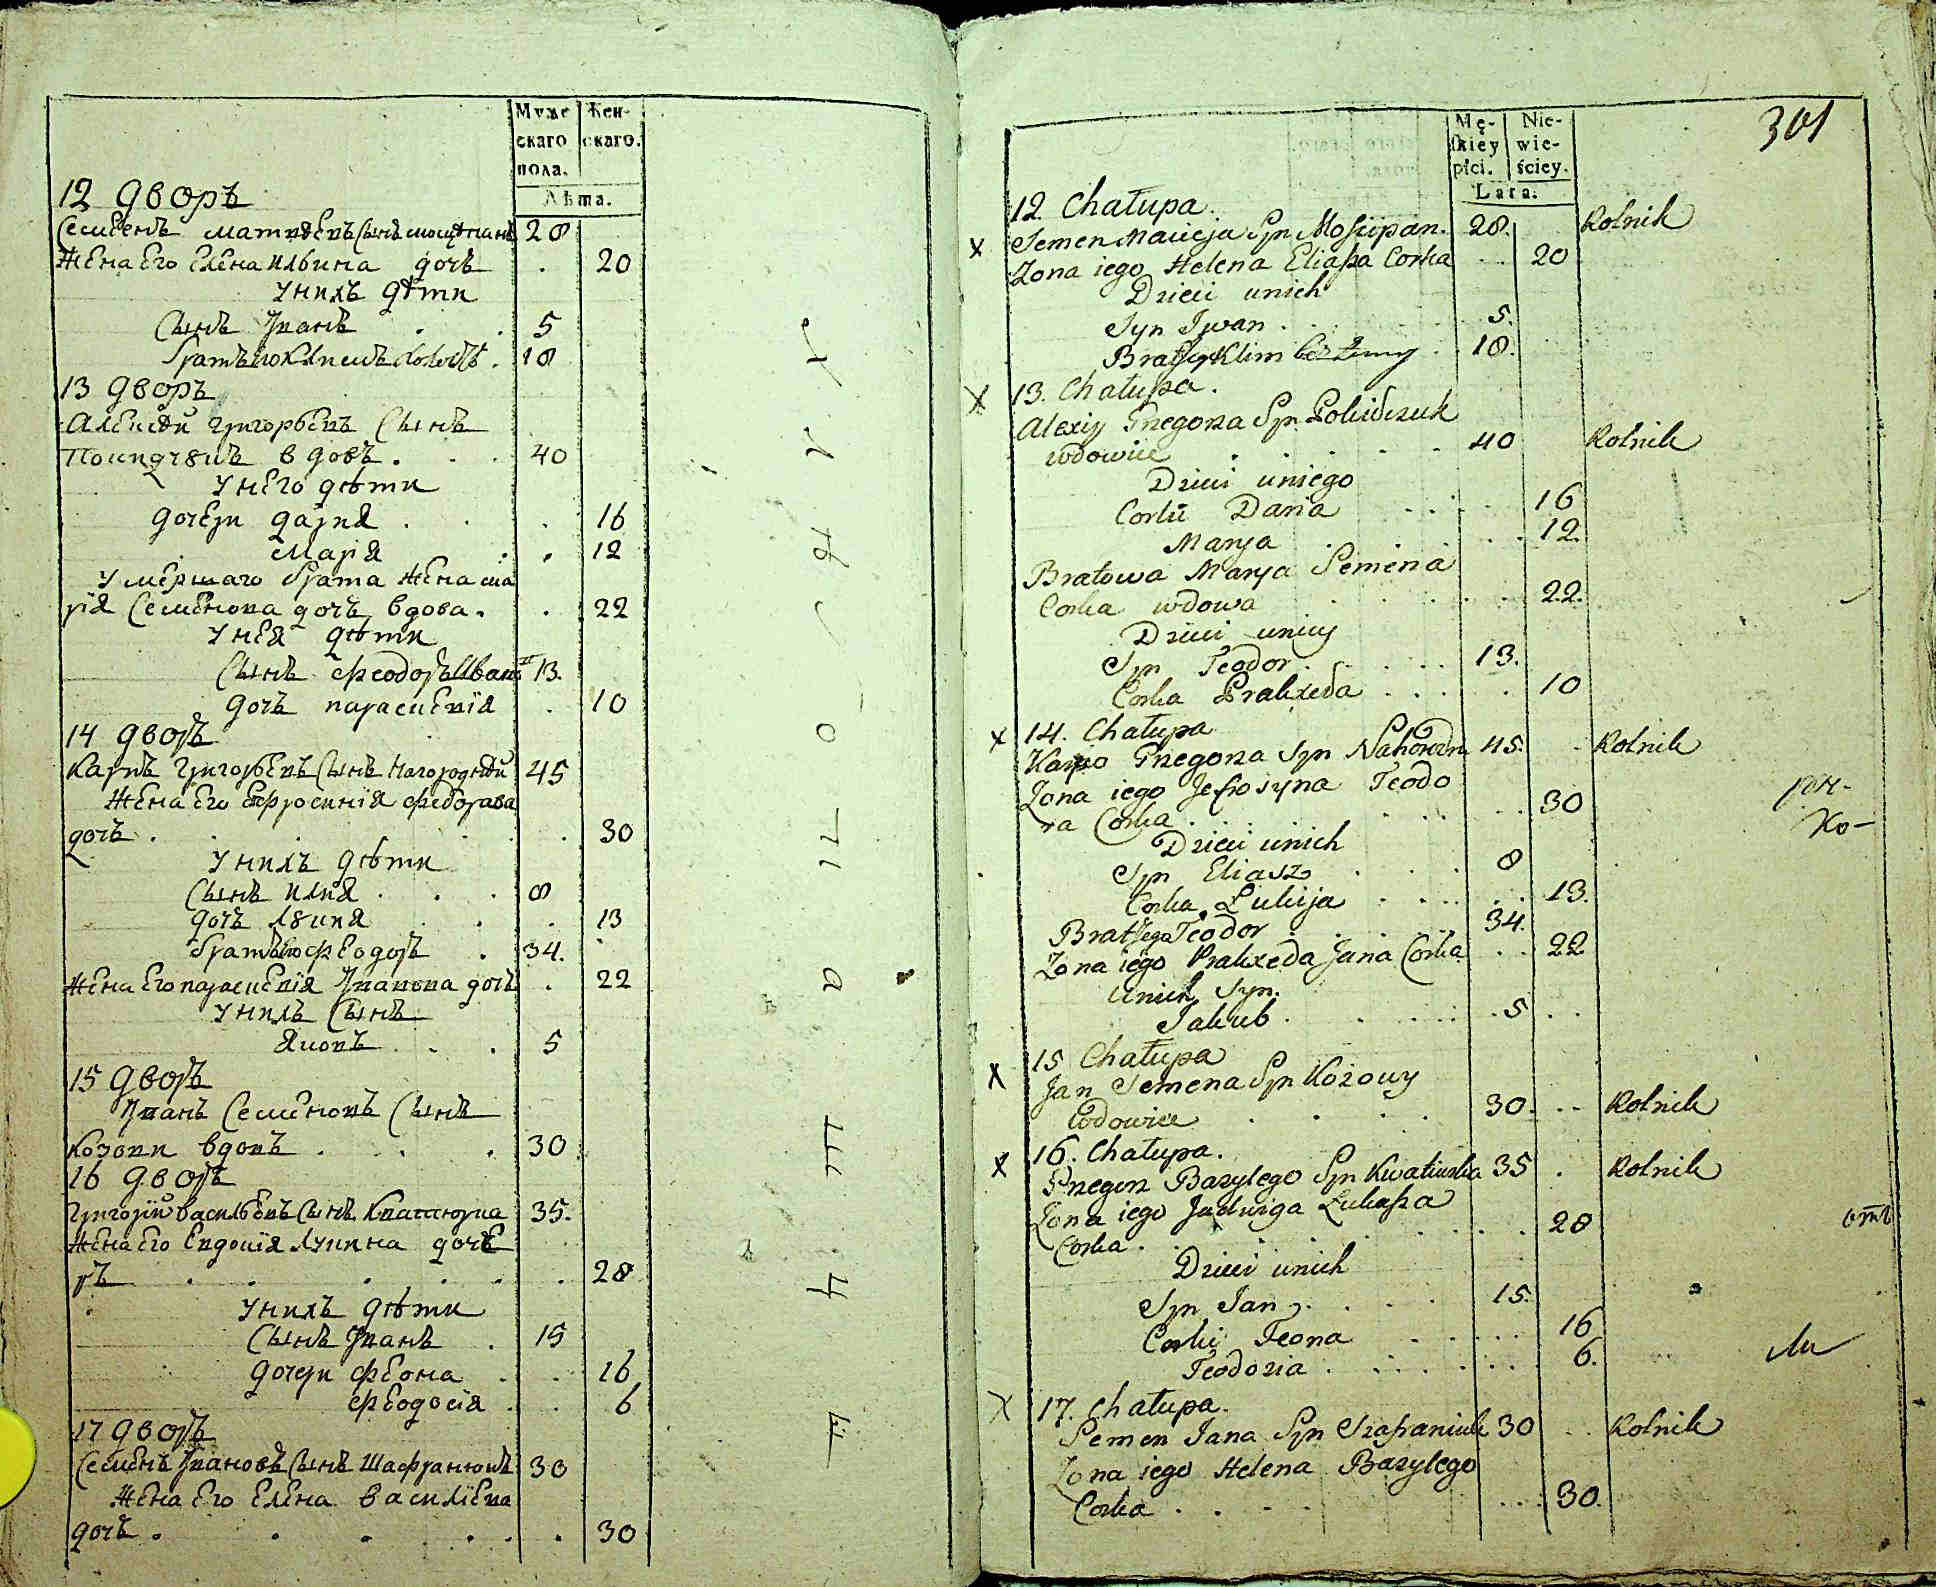 Муже
скаго
пола.
Жен-
скаго.
Лѣта.
12 дворъ
Семенъ матвѣевъ сынъ 28
жена его Елена ильина дочь . 20
у нихъ дѣти
сынъ Иванъ . . 5
братъ его климъ холостъ . 18
13 дворъ
Алексѣй григорьевъ сынъ
вдовъ . . . 40
у него дѣти
дочери дария . . 16
мария . . 12
умершаго брата жена ма
рія семенова дочь вдова . . 22
у нея дѣти
сынъ феодоръ Иван 13.
дочь параскевія . 10
14 дворъ
карпъ григорьевъ сынъ нагородній 45
жена его ефросинія федорава
дочь . . . . 30
у нихъ дѣти
сынъ илия . . . 8
дочь лукия . . 13
братъ его феодоръ . 34.
жена его параскевія Иванова дочь . 22
у нихъ сынъ
яковъ . . 5
15 дворъ
Иванъ Семеновъ сынъ
козови вдовъ . . . 30
16 дворъ
григорій васильевъ сынъ 35.
жена его Евдокія лукина дочь
. . . . . . 28
у нихъ дѣти
сынъ Иванъ . 15
дочери феона . . 16
феодосія . . 6
17 дворъ
Семенъ Ивановъ сынъ Шафранюкъ 30
жена его Елена василіева
дочь . . . . . 30
о
п
а
ш
ч
Mę-
skiey
płci.
Nie-
wie-
ściey.
Lata.
301
12. Chałupa.
Semen Macieja Syn Moszipan. 28. Rolnik
Zona iego Helena Eliasza Corka . . 20
Dzieci unich
Syn Jwan . . . 5.
Brat Jego Klim bez żenny . 18.
13. Chałupa.
Alexiy Gregorza Syn
wdowiec . . . 40 Rolnik
Dzieci uniego
Corki Daria . . . 16
Marya . . . 12.
Bratowa Marya Semena
Corka wdowa . . . 22.
Dzieci unicy
Syn Teodor . . . 13.
Corka Praxeda . . . 10
14. Chałupa
Karpo Gregorza Syn 45. Rolnik
Zona iego Jefrosyna Teodo
ra Corka . . . 30
Dzieci unich
Syn Eliasz . . . 8
Corka Lukija . . . 13.
Brat Jego Teodor . . . 34.
Zona iego Praxeda Jana Corka . . 22
unich Syn.
Jakub . . . 5 . .
15 Chałupa
Jan Semena Syn Kozowy
wdowiec . . . 30. . . Rolnik
16. Chałupa.
Gregorz Bazylego Syn 35 . Rolnik
Zona iego Jadwiga Lukasza
Corka . . . 28
Dzieci unich
Syn Jan . . . 15.
Corki Teona . . . 16
Teodozia . . . 6.
17. Chałupa.
Semen Jana Syn 30 . . Rolnik
Zona iego Helena Bazylego
Corka . . . 30.
Ко-